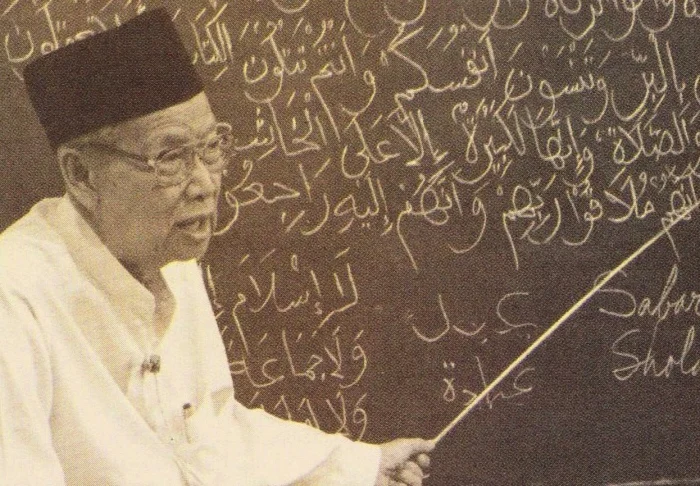 بِالْبِرِّ وَتَنْسَوْنَ أَنْفُسَكُمْ وَأَنْتُمْ تَتْلُونَ الْكِتَا
وَالصَّلَاةِ وَإِنَّهَا لَكَبِيرَةٌ إِلَّا عَلَى الْخَاشِ
مُلَاقُوا رَبِّهِمْ وَأَنَّهُمْ إِلَيْهِ رَاجِعُو
لَا إِسْلَامَ إِ
Sabar
وَلَا جَمَاعَةَ
عبادة
Shola
وَلَا